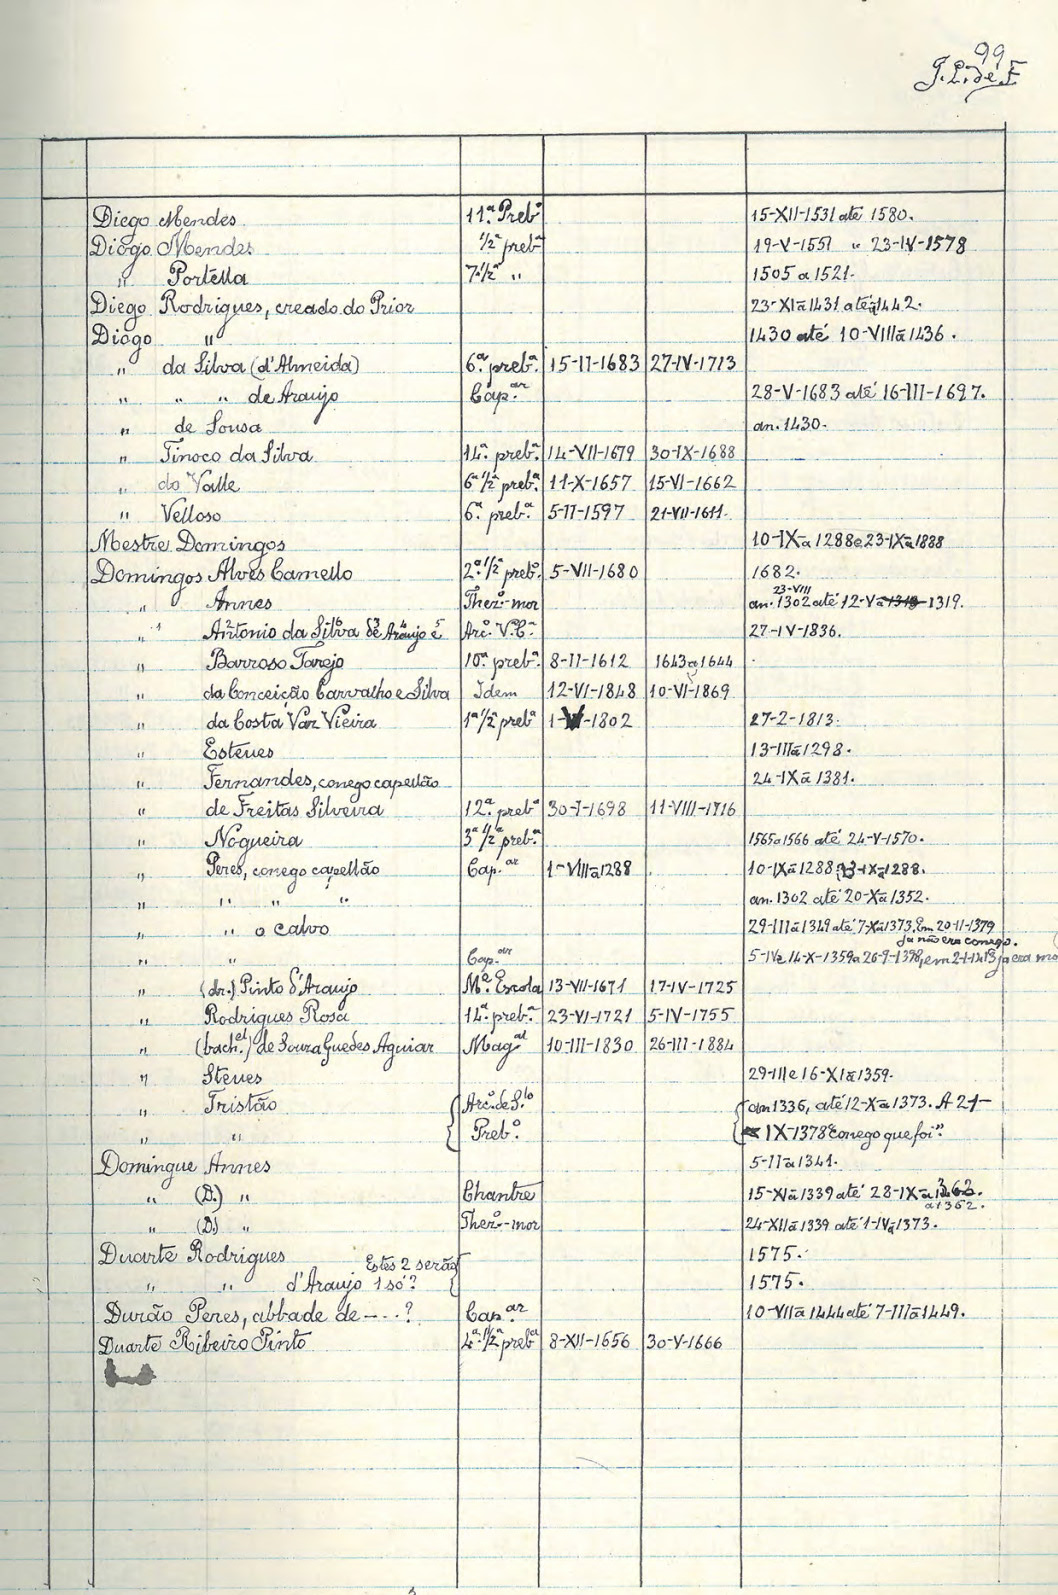 99
J. L. de F
Diego Mendes 11.ª Preb.ª 15-XII-1531 até 1580.
Diogo Mendes ½ preb.ª 19-V-1551 " 23-IV-1578
" Portella 7.½ª " 1505 a 1521.
Diego Rodrigues, creado do Prior 23-XI ā 1431 até ā 1442.
Diogo " 1430 até 10-VIII ā 1436.
" da Silva (d'Almeida) 6.ª preb.ª 15-II-1683 27-IV-1713
" " " de Araujo Cap.ar 28-V-1683 até 16-III-1697.
" de Sousa an. 1430.
" Tinoco da Silva 14.ª preb.ª 14-VII-1679 30-IX-1688
" do Valle 6ª ½ª preb.ª 11-X-1657 15-VI-1662
" Velloso 6.ª preb.ª 5-II-1597 21-VII-1611.
Mestre Domingos 10-IX ā 1288 e 23-IX ā 1888
Domingos Alves Camello 2.ª ½ª preb.ª 5-VII-1680 1682.
" Annes Thez.º-mor an. 1302 até 23-VIII 12-V ā 1319 1319.
" 1 Antonio 2 da Silva 6 de 3 Araujo 4 e 5 Arc.º V.ª C.ª 27-IV-1836.
" Barroso Tarejo 10.ª preb.ª 8-II-1612 1643 a 1644
" da Conceição Carvalho e Silva Idem 12-VI-1848 10-VI-1869
" da Costa Vaz Vieira 1ª ½ª preb.ª 1-V-1802 27-2-1813.
" Esteves 13-III ā 1298.
" Fernandes, conego capellão 24-IX ā 1381.
" de Freitas Silveira 12.ª preb.ª 30-I-1698 11-VIII-1716
" Nogueira 3ª ½ª preb.ª 1565 a 1566 até 24-V-1570.
" Peres, conego capellão Cap.ar 1-VIII ā 1288 10-IX ā 1288 e 23-IX ā 1288.
" " " " an. 1302 até 20-X ā 1352.
" " o calvo 29-III ā 1349 até 7-X ā 1373. Em 20-II-1379
já não era conego.
" " Cap.ar 14-X-1359 a 26-9-1378, em já era
" (dr.) Pinto d'Araujo M.e Escola 13-VII-1671 17-IV-1725
" Rodrigues Rosa 14.ª preb.ª 23-VI-1721 5-IV-1755
" (bach.el) de Souza Guedes Aguiar Mag.al 10-III-1830 26-III-1884
" Steves 29-III e 16-XI ā 1359.
" Tristão Arc.º de S.to an 1336, até 12-X ā 1373. A 21-
" " Preb.º IX-1378 "conego que foi".
Domingue Annes 5-II ā 1341.
" (D.) " Chantre 15-XI ā 1339 até 28-IX-ā 1362.
ā 1362.
" (D.) " Thez.º-mor 24-XII ā 1339 até 1-IV ā 1373.
Duarte Rodrigues Estes 2 serão 1575.
" " d'Araujo 1 só? 1575.
Durão Peres, abbade de ---? Cap.ar 10-VII ā 1444 até 7-III ā 1449.
Duarte Ribeiro Pinto 4.ª ½ª preb.ª 8-XII-1656 30-V-1666